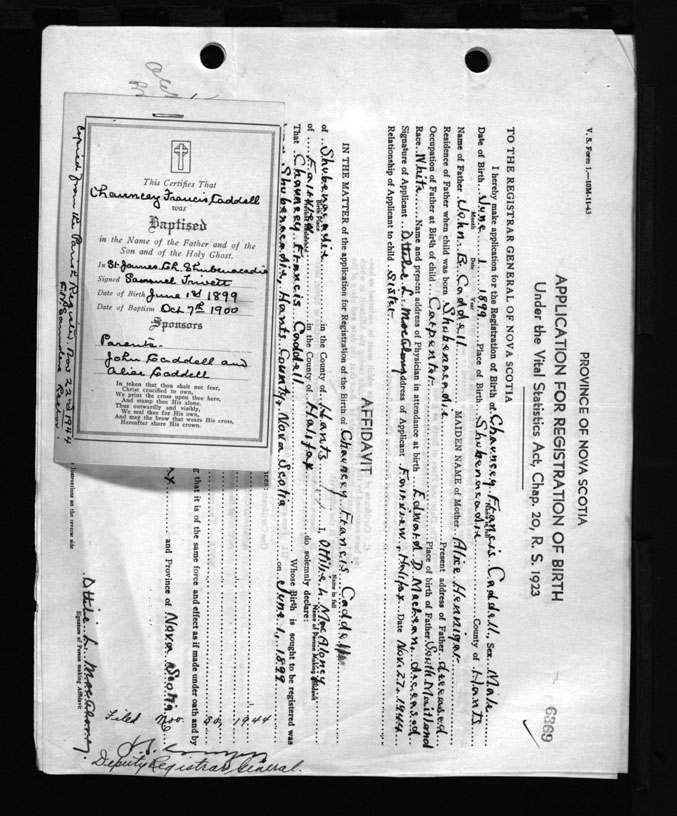 V. S. Form 1.—10M-11-43
PROVINCE OF NOVA SCOTIA
APPLICATION FOR REGISTRATION OF BIRTH
Under the Vital Statistics Act, Chap. 20, R. S. 1923
6869
TO THE REGISTRAR GENERAL OF NOVA SCOTIA
I hereby make application for the Registration of Birth of Chauncey Francis Caddell, Sex Male
Date of Birth June 1 1899 Place of Birth Shubenacadie County of Hants
Month Date Year
Name of Father John B. Caddell MAIDEN NAME of Mother Alice Hennigar
Residence of Father when child was born Shubenacadie Present address of Father deceased
Occupation of Father at Birth of child Carpenter Place of birth of Father South Maitland
Race White Name and present address of Physician in attendance at birth Edward D. MacLean, deceased
Signature of Applicant Ottilie L. MacAloney Address of Applicant Fairview, Halifax Date Nov. 27, 1944
Relationship of Applicant to child Sister
AFFIDAVIT
IN THE MATTER of the application for Registration of the Birth of Chauncey Francis Caddell
Name in full
of Shubenacadie in the County of Hants I, Ottilie L. MacAloney
Birth Place Name of Person Making Affidavit
of Fairview in the County of Halifax do solemnly declare:
That Chauncey Francis Caddell Whose Birth is sought to be registered was
Shubenacadie, Hants County, Nova Scotia on June 1, 1899
that it is of the same force and effect as if made under oath and by
and Province of Nova Scotia
Ottilie L. MacAloney
Signature of Person making Affidavit
Filed Nov. 30, 1944
Deputy Registrar General.
Instructions on the reverse side
This Certifies That
Chauncey Francis Caddell
was
Baptised
in the Name of the Father and of the
Son and of the Holy Ghost.
In St James Ch. Shubenacadie
Signed Samuel Trivett
Date of Birth June 1st 1899
Date of Baptism Oct 7th 1900
Sponsors
Parents.
John Caddell and
Alice Caddell
In token that thou shalt not fear,
Christ crucified to own,
We print the cross upon thee here,
And stamp thee His alone.
Thus outwardly and visibly,
We seal thee for His own,
And may the brow that wears His cross,
Hereafter share His crown.
Copied from the Parish Register, Nov 22nd 1944
Rector.